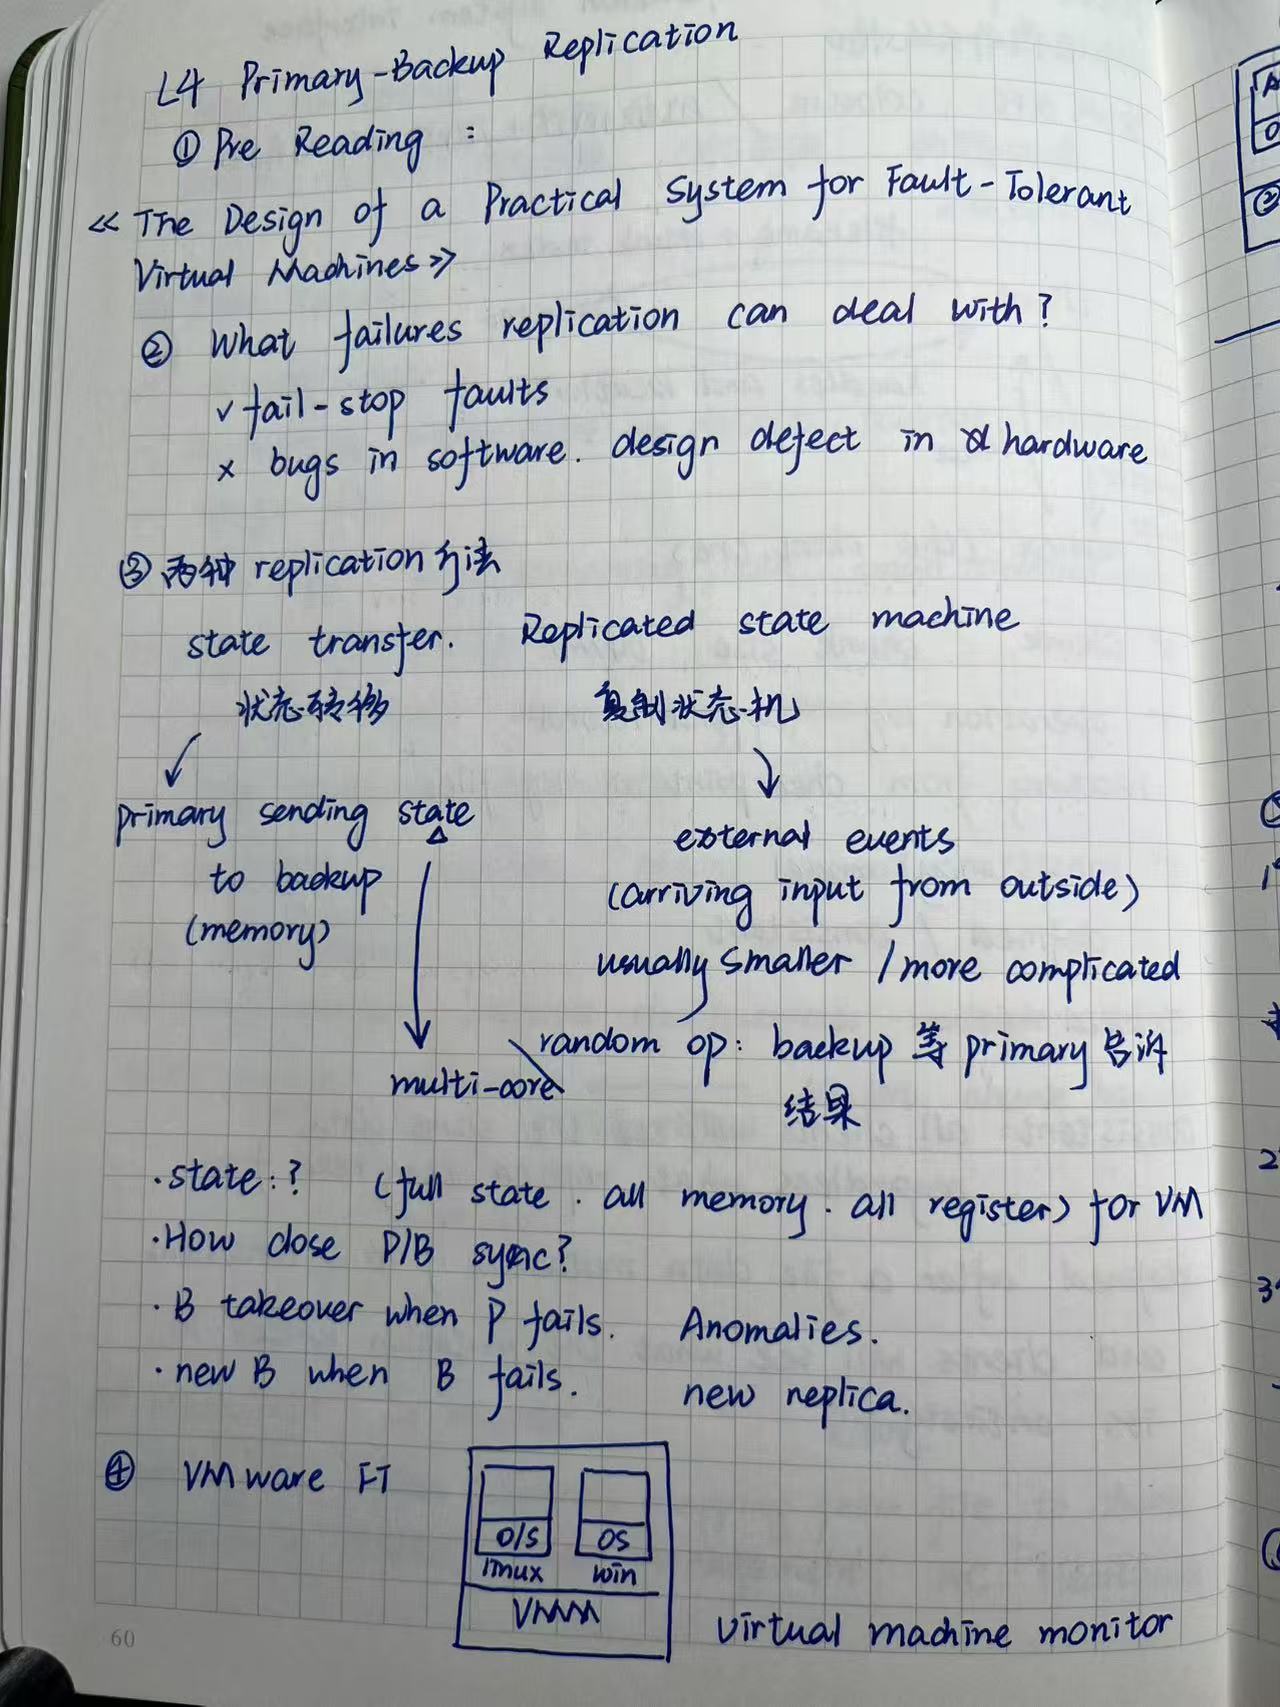 L4 Primary-Backup Replication
① Pre Reading :
《The Design of a Practical System for Fault-Tolerant
Virtual Machines》
② What failures replication can deal with?
✓ fail-stop faults
× bugs in software. design defect in hardware
③ 两种 replication 方法
state transfer. Replicated state machine
状态转移 复制状态机
primary sending state
to backup
(memory)
external events
(arriving input from outside)
usually smaller / more complicated
random op: backup 等 primary 告诉
结果
multi-core
· state: ? (full state . all memory . all register) for VM
· How close P/B sync?
· B takeover when P fails. Anomalies.
· new B when B fails. new replica.
④ VMware FT
O/S OS
linux win
VMM
virtual machine monitor
60